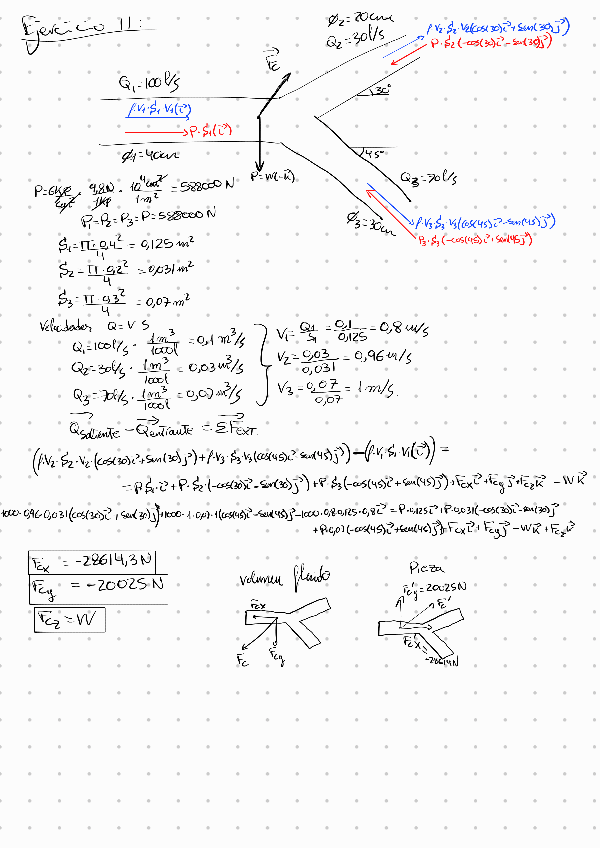 Ejercicio 11:
ϕ₂=20cm
Q₂=30l/s
ρ·V₂·S₂·V₂(cos(30)i⃗+sen(30)j⃗)
P·S₂(-cos(30)i⃗-sen(30)j⃗)
F⃗c
Q₁=100l/s
ρ·V₁·S₁·V₁(i⃗)
P·S₁(i⃗)
ϕ₁=40cm
30°
45°
Q₃=70l/s
P=W(-k⃗)
ϕ₃=30cm
ρ·V₃·S₃·V₃(cos(45)i⃗-sen(45)j⃗)
P₃·S₃(-cos(45)i⃗+sen(45)j⃗)
P=6kp/cm² · 9,8N/1kp · 10⁴cm²/1m² = 588000 N
P₁=P₂=P₃=P=588000 N
S₁=Π·0,4²/4 = 0,125 m²
S₂=Π·0,2²/4 = 0,031 m²
S₃=Π·0,3²/4 = 0,07 m²
Velocidades Q=V·S
Q₁=100l/s · 1m³/1000l = 0,1 m³/s
Q₂=30l/s · 1m³/1000l = 0,03 m³/s
Q₃=70l/s · 1m³/1000l = 0,07 m³/s
V₁=Q₁/S₁=0,1/0,125=0,8 m/s
V₂=0,03/0,031=0,96 m/s
V₃=0,07/0,07=1 m/s.
Qsaliente - Qentrante = ΣFEXT.
(ρ·V₂·S₂·V₂·(cos(30)i⃗+sen(30)j⃗)+ρ·V₃·S₃·V₃(cos(45)i⃗-sen(45)j⃗))-(ρ·V₁·S₁·V₁(i⃗))=
=P·S₁·i⃗+P·S₂·(-cos(30)i⃗-sen(30)j⃗)+P·S₃(-cos(45)i⃗+sen(45)j⃗)+Fcx i⃗+Fcy j⃗+Fcz k⃗-Wk⃗
1000·0,96·0,031(cos(30)i⃗+sen(30)j⃗)+1000·1·0,07·1(cos(45)i⃗-sen(45)j⃗)-1000·0,8·0,125·0,8i⃗=P·0,125i⃗+P·0,031(-cos(30)i⃗-sen(30)j⃗
+P·0,07(-cos(45)i⃗+sen(45)j⃗)+Fcx i⃗+Fcy j⃗-Wk⃗+Fcz k⃗
Fcx = -28614,3 N
Fcy = -20025 N
Fcz = W
Volumen fluido
Fcx
Fc
Fcy
Pieza
Fcy'=20025N
Fc'
Fcx'=
-28614N